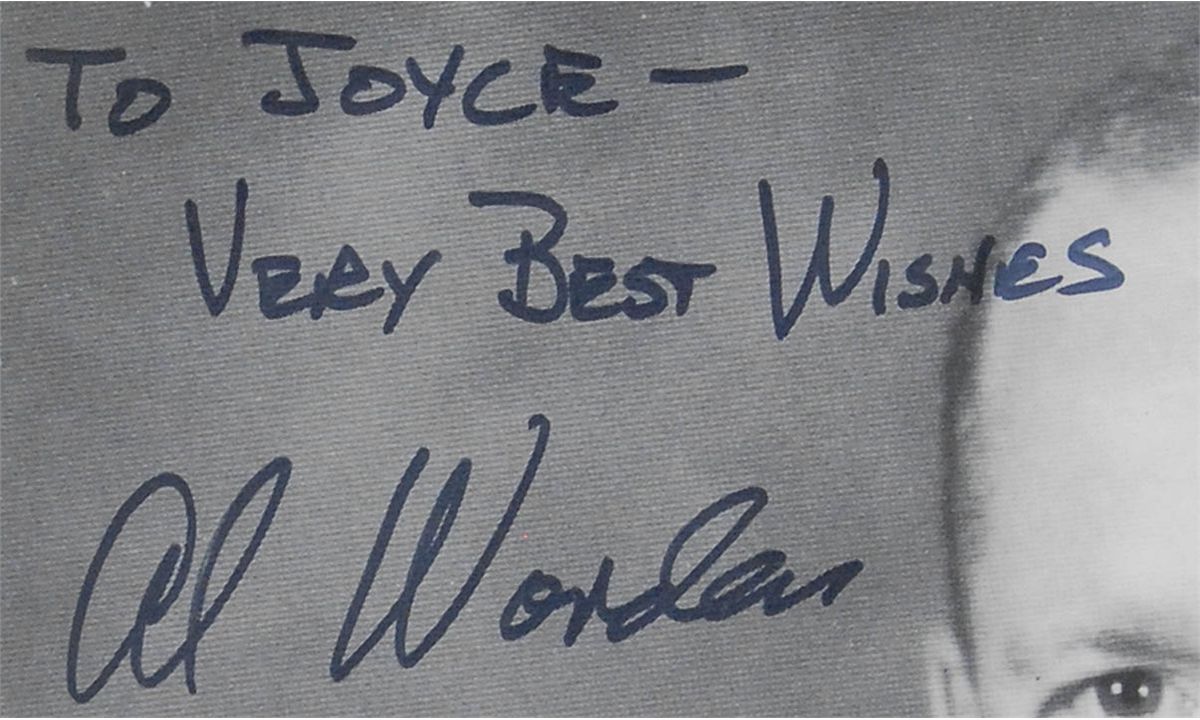 To JOYCE —
VERY BEST WISHES
Al Worden